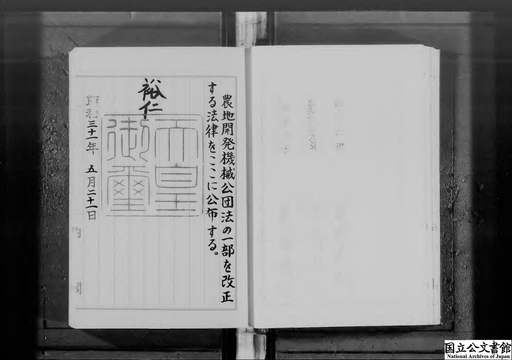 農地開発機械公団法の一部を改正
する法律をここに公布する。
裕仁
天皇
御璽
昭和三十一年 五月二十一日
内
閣
国立公文書館
National Archives of Japan